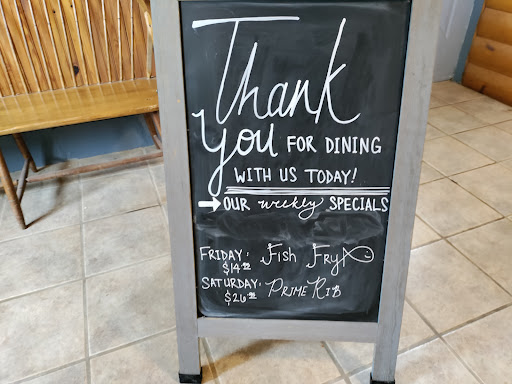 Thank
you FOR DINING
WITH US TODAY!
OUR weekly SPECIALS
FRIDAY: Fish Fry
$14.
SATURDAY: PRIME RIB
$26.